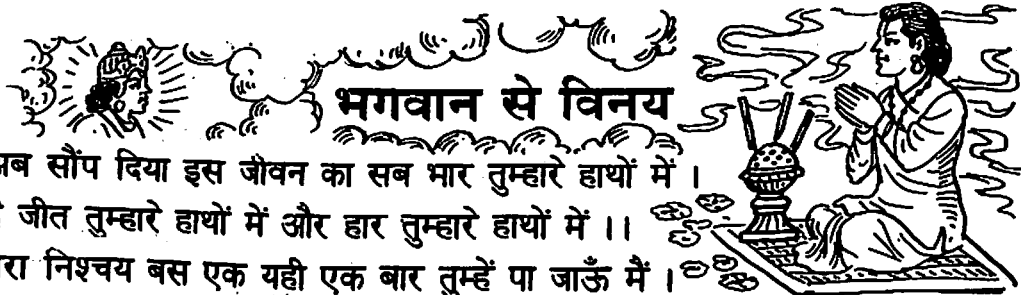 भगवान से विनय
सौंप दिया इस जीवन का सब भार तुम्हारे हाथों में ।
जीत तुम्हारे हाथों में और हार तुम्हारे हाथों में ।।
निश्चय बस एक यही एक बार तुम्हें पा जाऊँ मैं ।